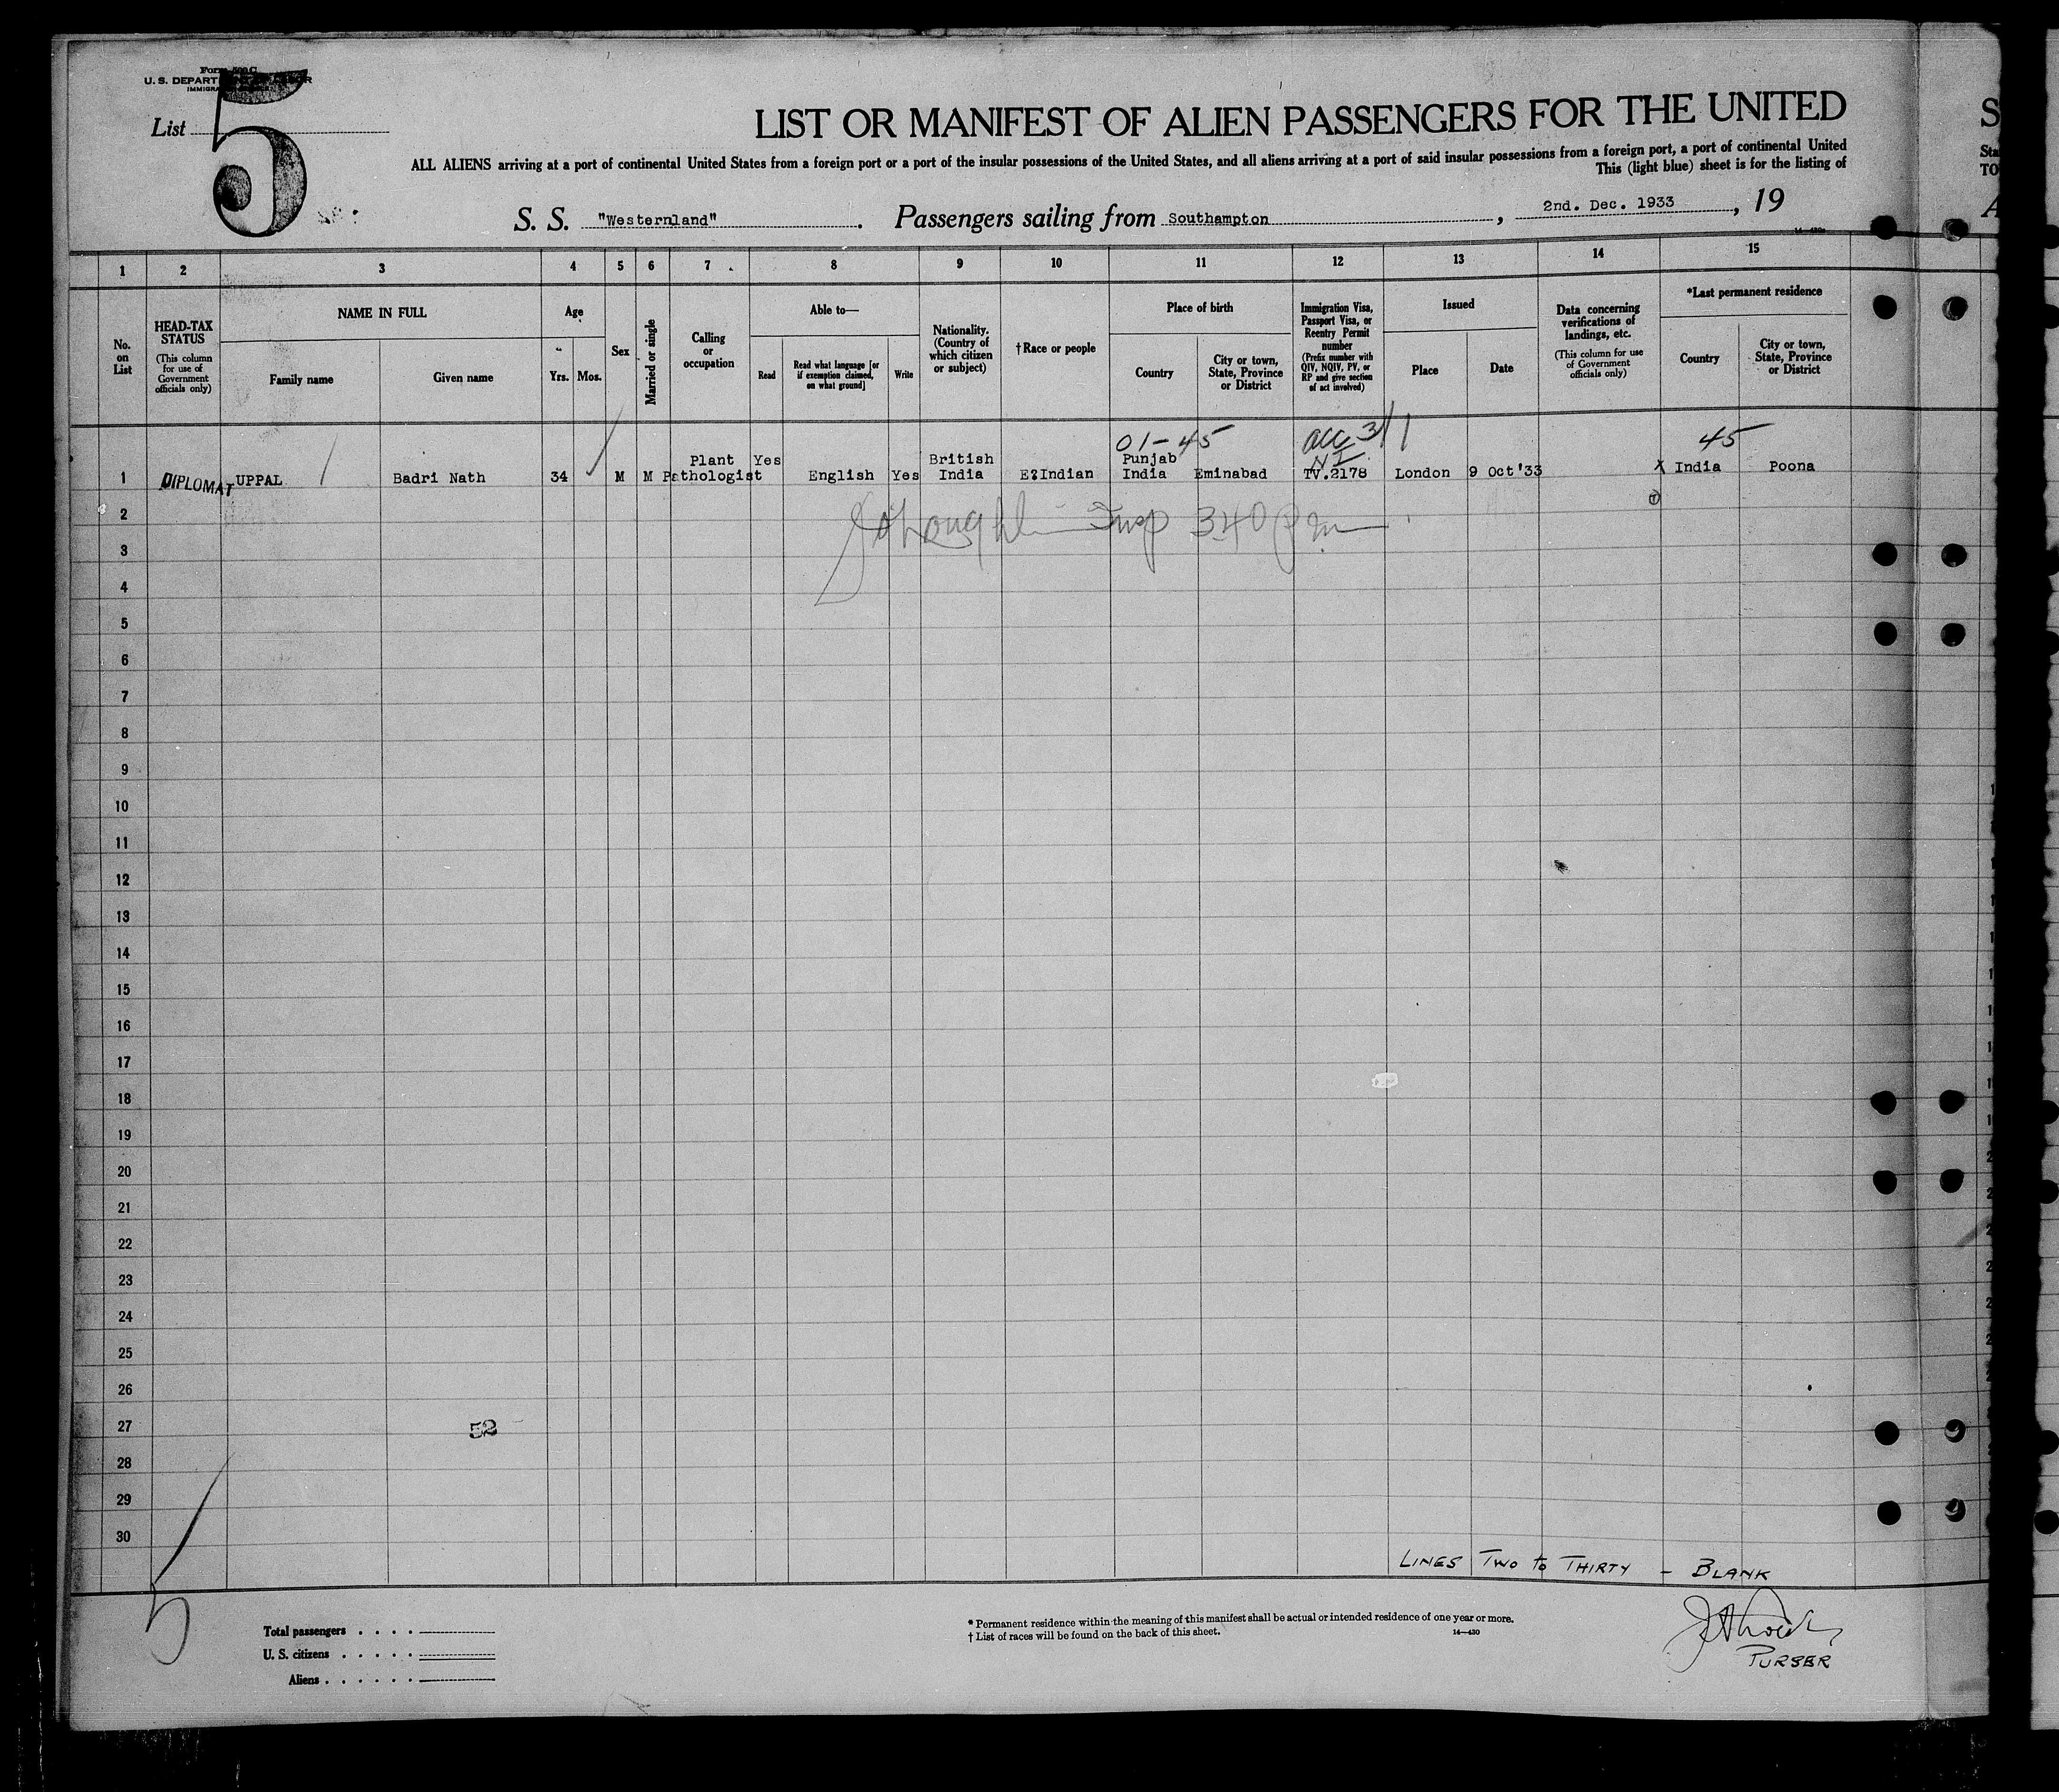 Form 500 C
U. S. DEPARTMENT OF LABOR
List 5
LIST OR MANIFEST OF ALIEN PASSENGERS FOR THE UNITED
ALL ALIENS arriving at a port of continental United States from a foreign port or a port of the insular possessions of the United States, and all aliens arriving at a port of said insular possessions from a foreign port, a port of continental United
This (light blue) sheet is for the listing of
S. S. "Westernland". Passengers sailing from Southampton, 2nd. Dec. 1933, 19
1 2 3 4 5 6 7 8 9 10 11 12 13 14 15
No. on List
HEAD-TAX STATUS
(This column for use of Government officials only)
NAME IN FULL
Family name
Given name
Age
Yrs. Mos.
Sex
Married or single
Calling or occupation
Able to—
Read
Read what language [or if exemption claimed, on what ground]
Write
Nationality. (Country of which citizen or subject)
†Race or people
Place of birth
Country
City or town, State, Province or District
Immigration Visa, Passport Visa, or Reentry Permit number
(Prefix number with QIV, NQIV, PV, or RP and give section of act involved)
Issued
Place
Date
Data concerning verifications of landings, etc.
(This column for use of Government officials only)
*Last permanent residence
Country
City or town, State, Province or District
01-45 acc 3/1 45
NI
Plant Yes British Punjab
1 DIPLOMAT UPPAL Badri Nath 34 M M Pathologist English Yes India E?Indian India Eminabad TV.2178 London 9 Oct'33 X India Poona
2
Insp 340 pm
3
4
5
6
7
8
9
10
11
12
13
14
15
16
17
18
19
20
21
22
23
24
25
26
27 52
28
29
30
LINES TWO to THIRTY - BLANK
5
Total passengers
U. S. citizens
Aliens
* Permanent residence within the meaning of this manifest shall be actual or intended residence of one year or more.
† List of races will be found on the back of this sheet. 14—430
PURSER